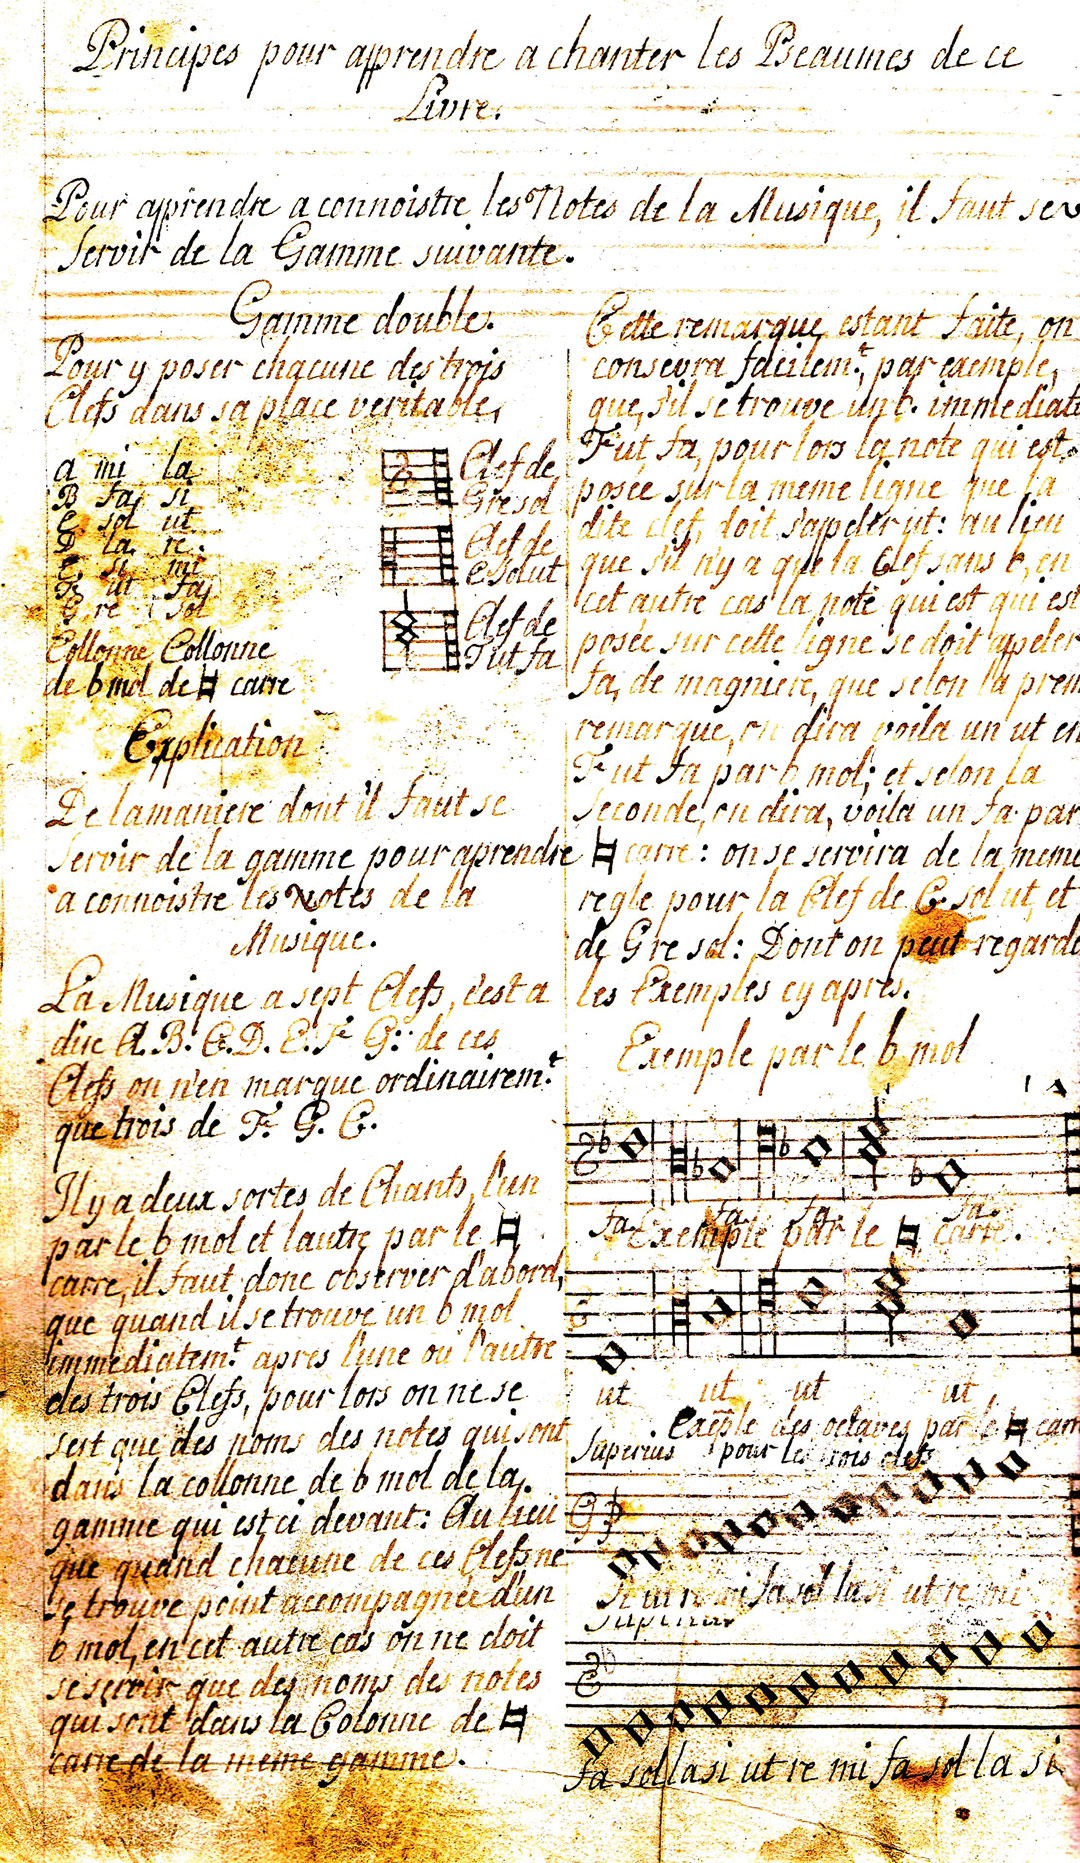 Principes pour apprendre a chanter les Pseaumes de ce
Livre.
Pour aprendre a connoistre les Notes de la Musique, il faut se
servir de la Gamme suivante.
Gamme double.
Pour y poser chacune des trois
Clefs dans sa place veritable,
a mi la
B fa si
C sol ut
D la re.
E si mi
F ut fa
G re sol
Collonne Collonne
de b mol de ♮ carre
Clef de
G re sol
Clef de
C sol ut
Clef de
F ut fa
Explication
De la maniere dont il faut se
servir de la gamme pour aprendre
a connoistre les Notes de la
Musique.
La Musique a sept Clefs, c'est a
dire A. B. C. D. E. F G: de ces
Clefs on n'en marque ordinairem.t
que trois de F. G. C.
Il y a deux sortes de Chants, l'un
par le b mol et lautre par le ♮
carre, il faut donc observer d'abord,
que quand il se trouve un b mol
immediatem.t apres l'une ou l'autre
des trois Clefs, pour lors on ne se
sert que des noms des notes qui sont
dans la collonne de b mol de la
gamme qui est ci devant: Au lieu
que quand chacune de ces Clefs ne
se trouve point accompagnée d'un
b mol, en cet autre cas on ne doit
se servir que des noms des notes
qui sont dans la Colonne de ♮
carre de la meme gamme.
Cette remarque estant faite, on
consevra facilem.t, par exemple,
que, s'il se trouve un b. immediat
F ut fa, pour lors la note qui est
posée sur la meme ligne que la
dite clef, doit s'apeler ut: au lieu
que s'il n'y a que la Clef sans b, en
cet autre cas la note qui est qui est
posée sur cette ligne se doit appeler
fa, de magniere, que selon la prem
remarque, on dira voila un ut en
F ut fa par b mol; et selon la
seconde, on dira, voila un fa par
♮ carre: on se servira de la meme
regle pour la Clef de C. sol ut, et
de G re sol: Dont on peut regarde
les Exemples cy apres.
Exemple par le b mol
fa fa fa fa
Exemple par le ♮ carre.
ut ut ut ut,
Exeple des octaves par le ♮ carr
Superius pour les trois clefs
si ut re mi fa sol la si ut re mi
Superius
fa sol la si ut re mi fa sol la si